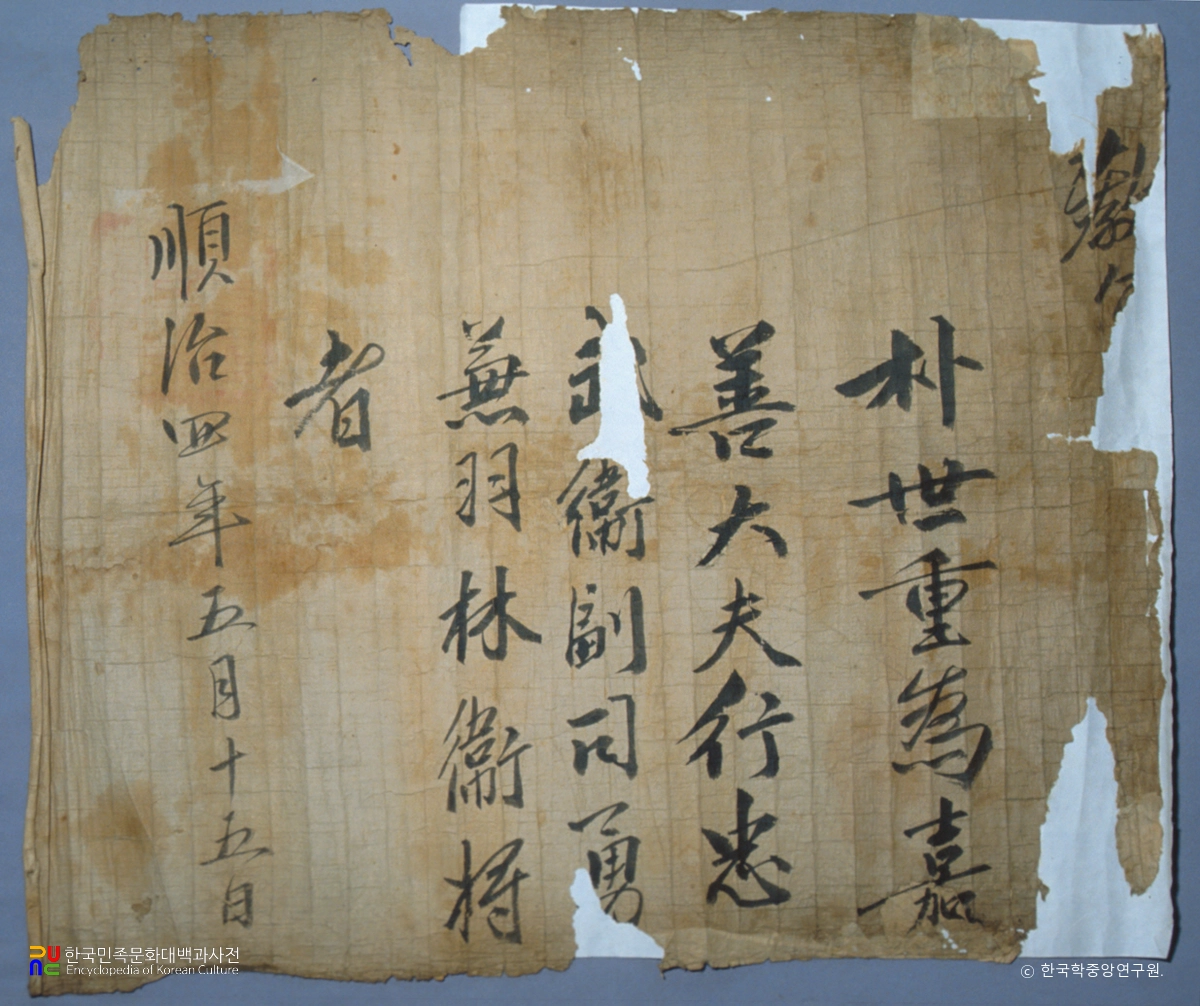 教
朴世重爲嘉
善大夫行忠
武衛副司勇
兼羽林衛将
者
順治四年五月十五日
한국민족문화대백과사전
Encyclopedia of Korean Culture
© 한국학중앙연구원.